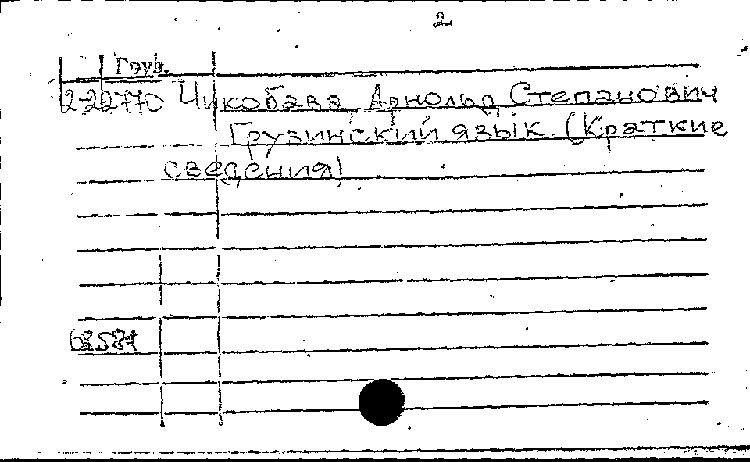 2
2-22770 Чикобава, Арнольд Степанович
Грузинский язык. (Краткие
сведения)